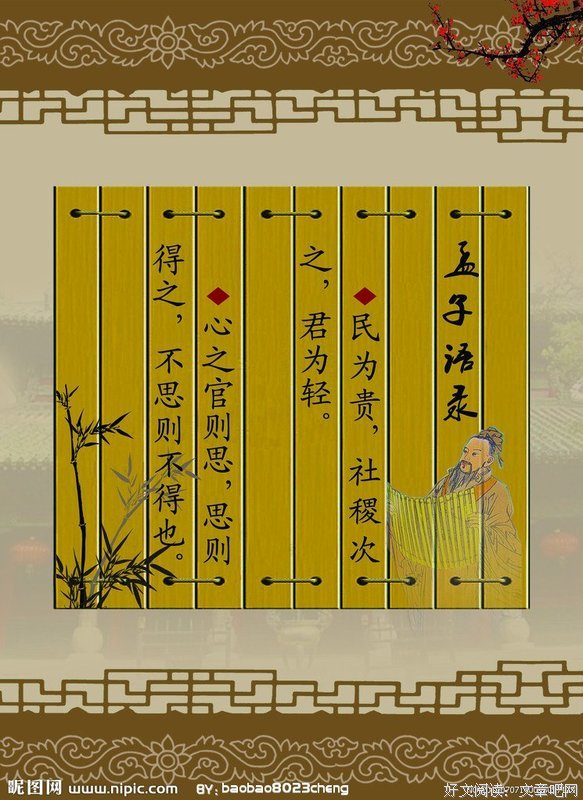 孟子语录
◆民为贵，社稷次
之，君为轻。
◆心之官则思，思则
得之，不思则不得也。
昵图网 www.nipic.com BY：baobao8023cheng
好文阅读：文章吧网